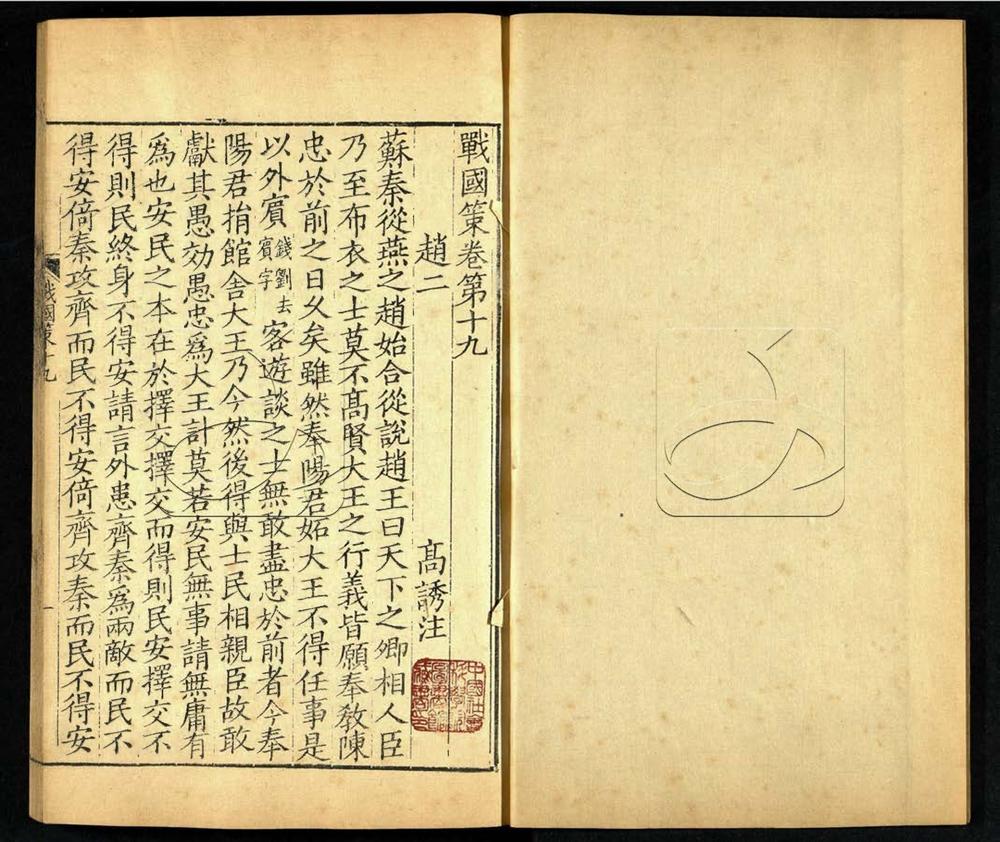 戰國策卷第十九
趙二 高誘注
蘇秦從燕之趙始合從說趙王曰天下之卿相人臣
乃至布衣之士莫不高賢大王之行義皆願奉敎陳
忠於前之日乆矣雖然奉陽君妬大王不得任事是
以外賓錢劉去賓字客遊談之士無敢盡忠於前者今奉
陽君捐館舍大王乃今然後得與士民相親臣故敢
獻其愚効愚忠爲大王計莫若安民無事請無庸有
爲也安民之本在於擇交擇交而得則民安擇交不
得則民終身不得安請言外患齊秦爲兩敵而民不
得安倚秦攻齊而民不得安倚齊攻秦而民不得安
戰國策十九
一